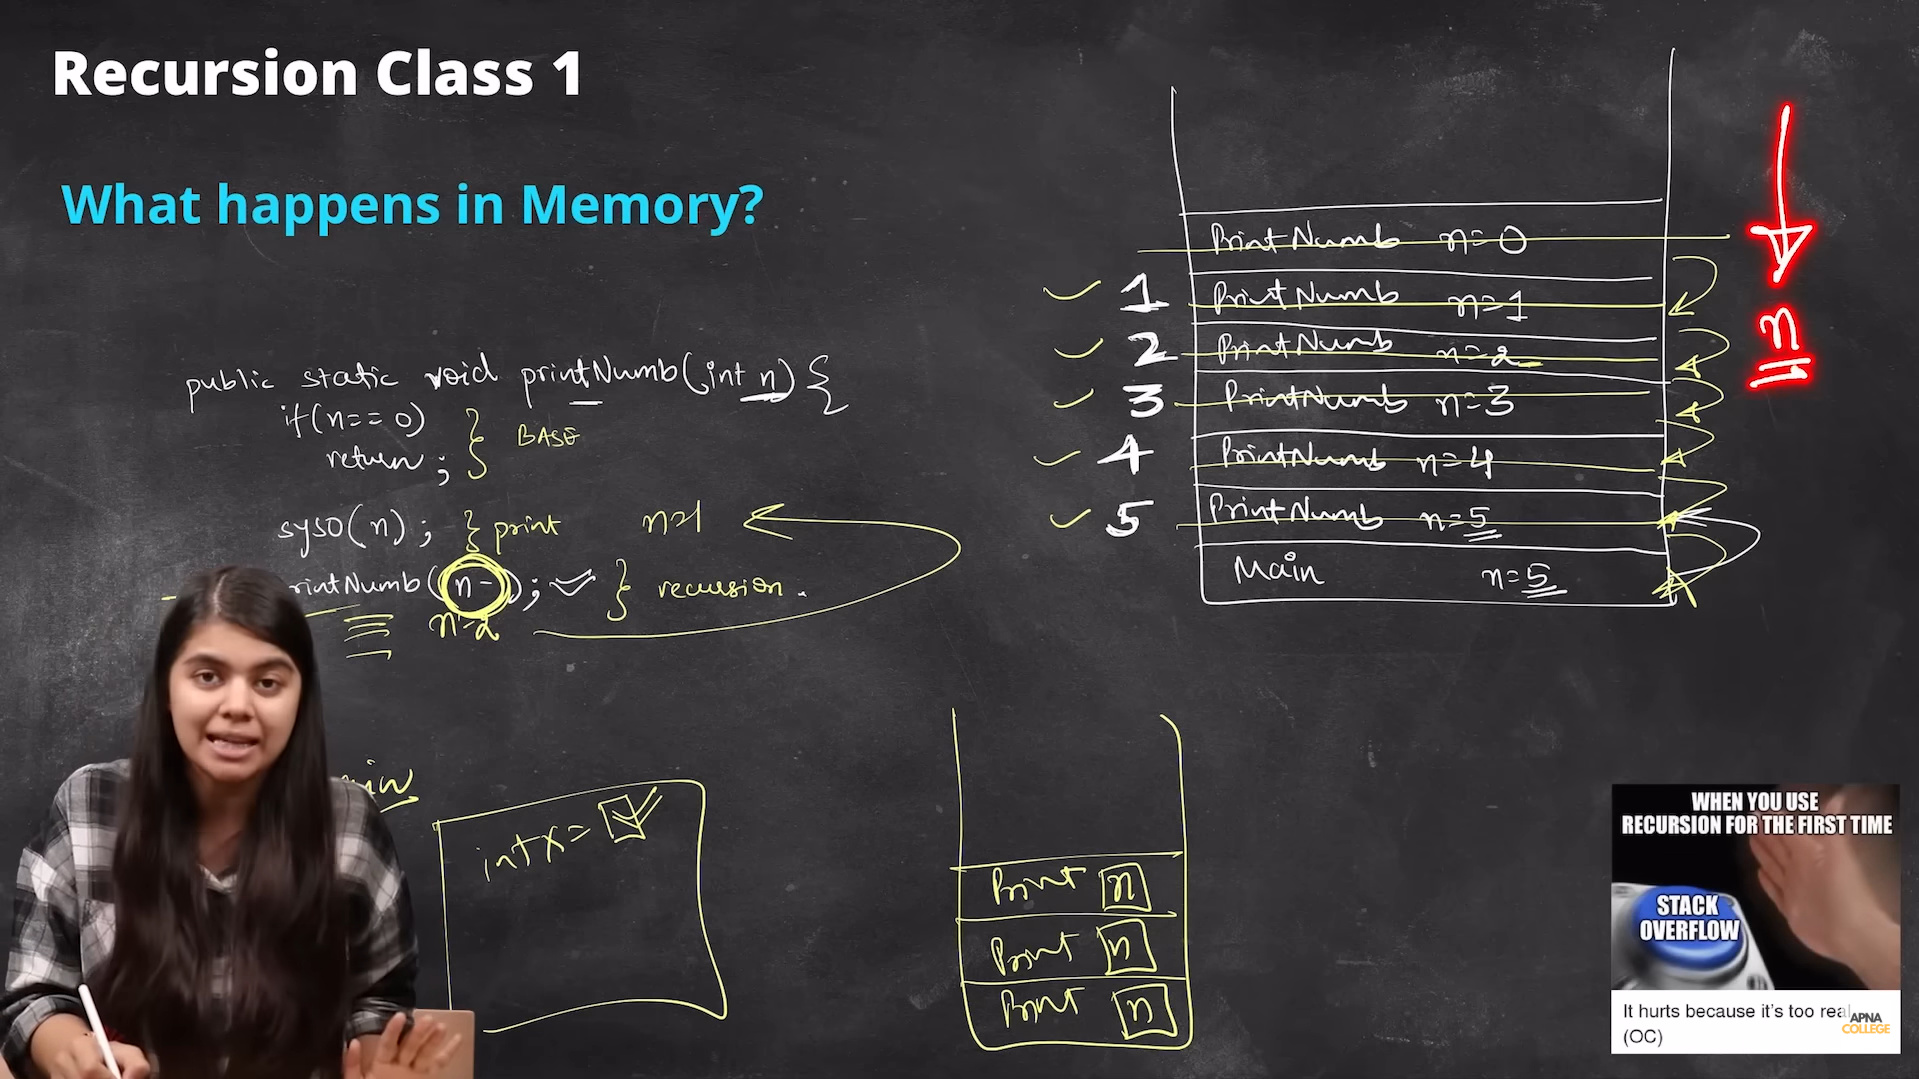 Recursion Class 1
What happens in Memory?
public static void printNumb(int n) {
if(n== 0) } BASE
return ;
syso(n) ; } print n=1
rintNumb(n-); } recursion .
n-2
int x=
PrintNumb n=0
1 PrintNumb n=1
2 PrintNumb n=2
3 PrintNumb n=3
4 PrintNumb n=4
5 PrintNumb n=5
Main n=5
n
Print n
Print n
Print n
WHEN YOU USE
RECURSION FOR THE FIRST TIME
STACK
OVERFLOW
It hurts because it's too real
(OC)
APNA
COLLEGE